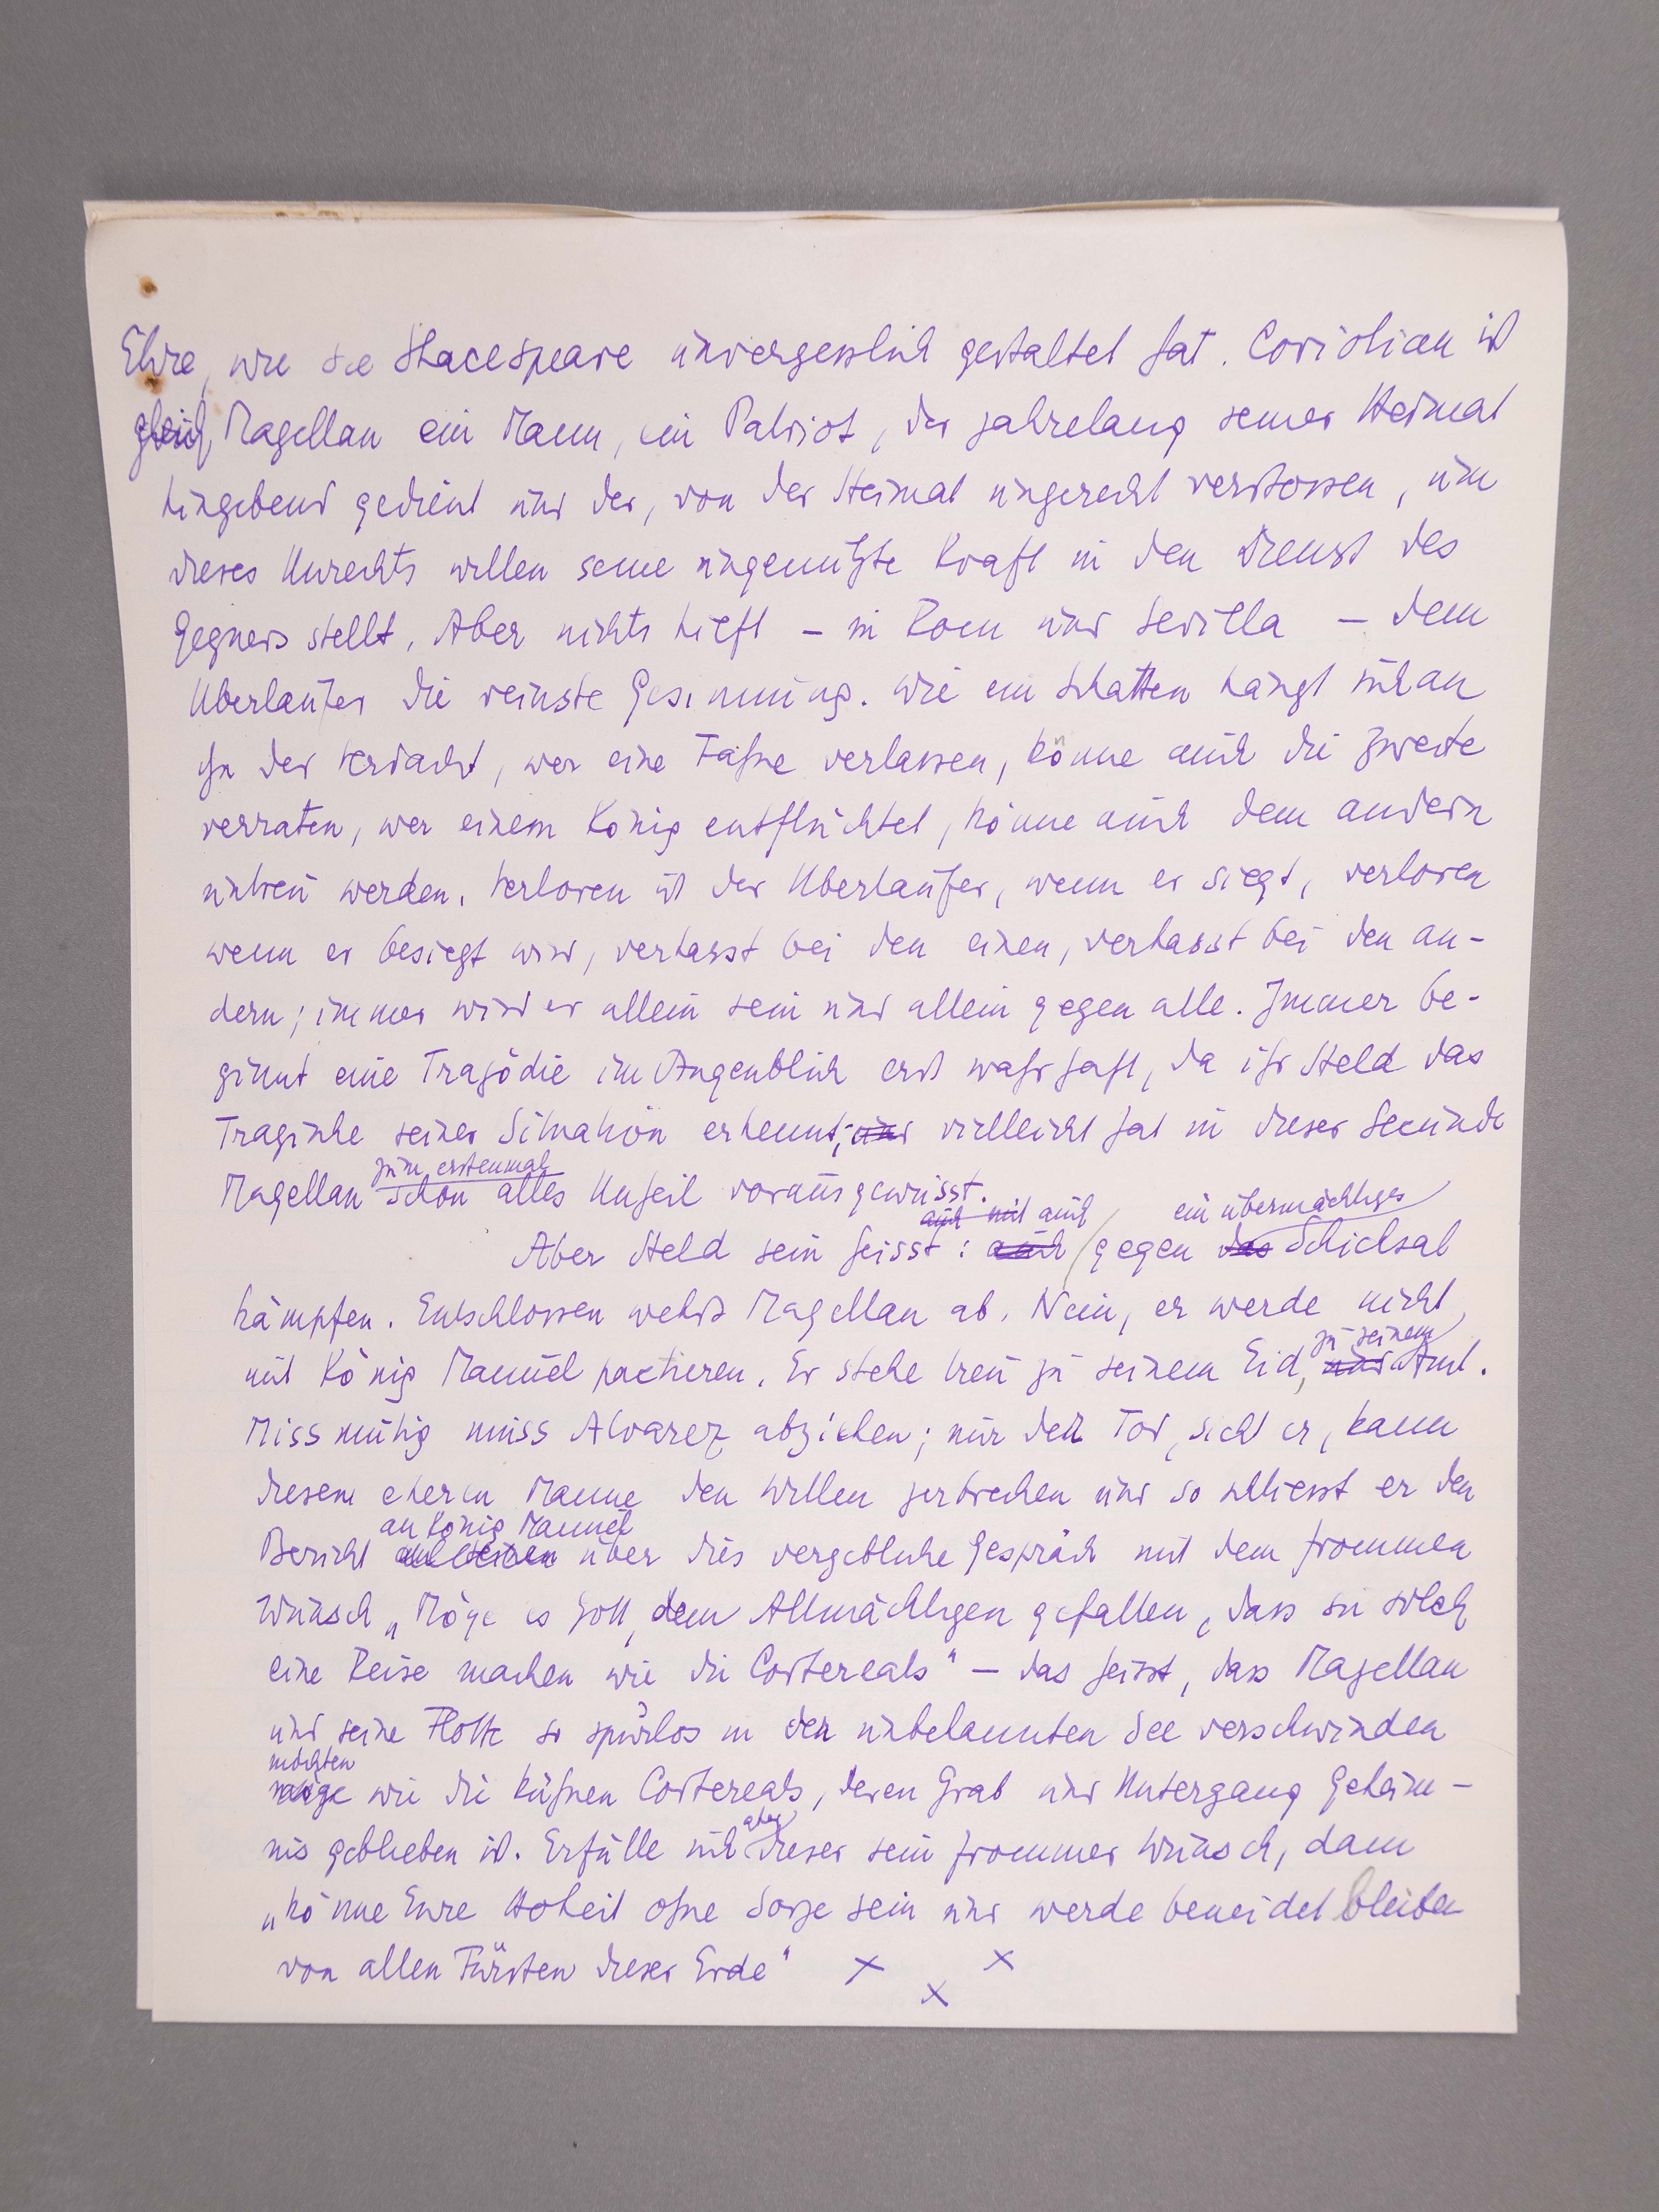 Ehre, wie sie Shacespeare unvergesslich gestaltet hat. Coriolian ist
gleich Magellan ein Mann, ein Patriot, der jahrelang seiner Heimat
hingebend gedient und der, von der Heimat ungerecht verstossen, um
dieses Unrechts willen seine ungenutzte Kraft in den Dienst des
Gegners stellt. Aber nichts hieft – in Rom und Sevilla – dem
Uberlaufer die reinste Gesinnung. Wie ein Schatten hängt sich an
ihn der Verdacht, wer eine Fahne verlassen, könne auch die zweite
verraten, wer einem König entflüchtet, könne auch dem andern
untreu werden. Verloren ist der Uberlaufer, wenn er siegt, verloren
wenn er besiegt wird, verhasst bei den einen, verhasst bei den an-
dern; immer wird er allein sein und allein gegen alle. Immer be-
ginnt eine Tragödie im Augenblick erst wahrhaft, da ihr Held das
Tragische seiner Situation erkennt; und vielleicht hat in dieser Secunde
zum erstenmal
Magellan schon alles Unheil vorausgewusst.
auch mit auch ein übermächtiges
Aber Held sein heisst: auch gegen das Schicksal
kämpfen. Entschlossen wehrt Magellan ab. Nein, er werde nicht
zu seinem
mit König Manuel pactieren. Er stehe treu zu seinem Eid, und Amt.
Missmutig muss Alvarez abziehen; nur der Tod, sieht er, kann
diesem ehernen Manne den Willen zerbrechen und so schliesst er den
an König Manuel
Bericht über dies vergebliche Gespräch mit dem frommen
Wunsch „Möge es Gott, dem Allmächtigen gefallen, dass sie solch
eine Reise machen wie die Cortereals" – das heisst, dass Magellan
und seine Flotte so spurlos in der unbekannten See verschwinden
möchten
möge wie die kühnen Cortereals, deren Grab und Untergang Geheim-
aber
nis geblieben ist. Erfülle sich dieser sein frommer Wunsch, dann
„könne Eure Hoheit ohne Sorge sein und werde beneidet bleiben
von allen Fürsten dieser Erde" x x x